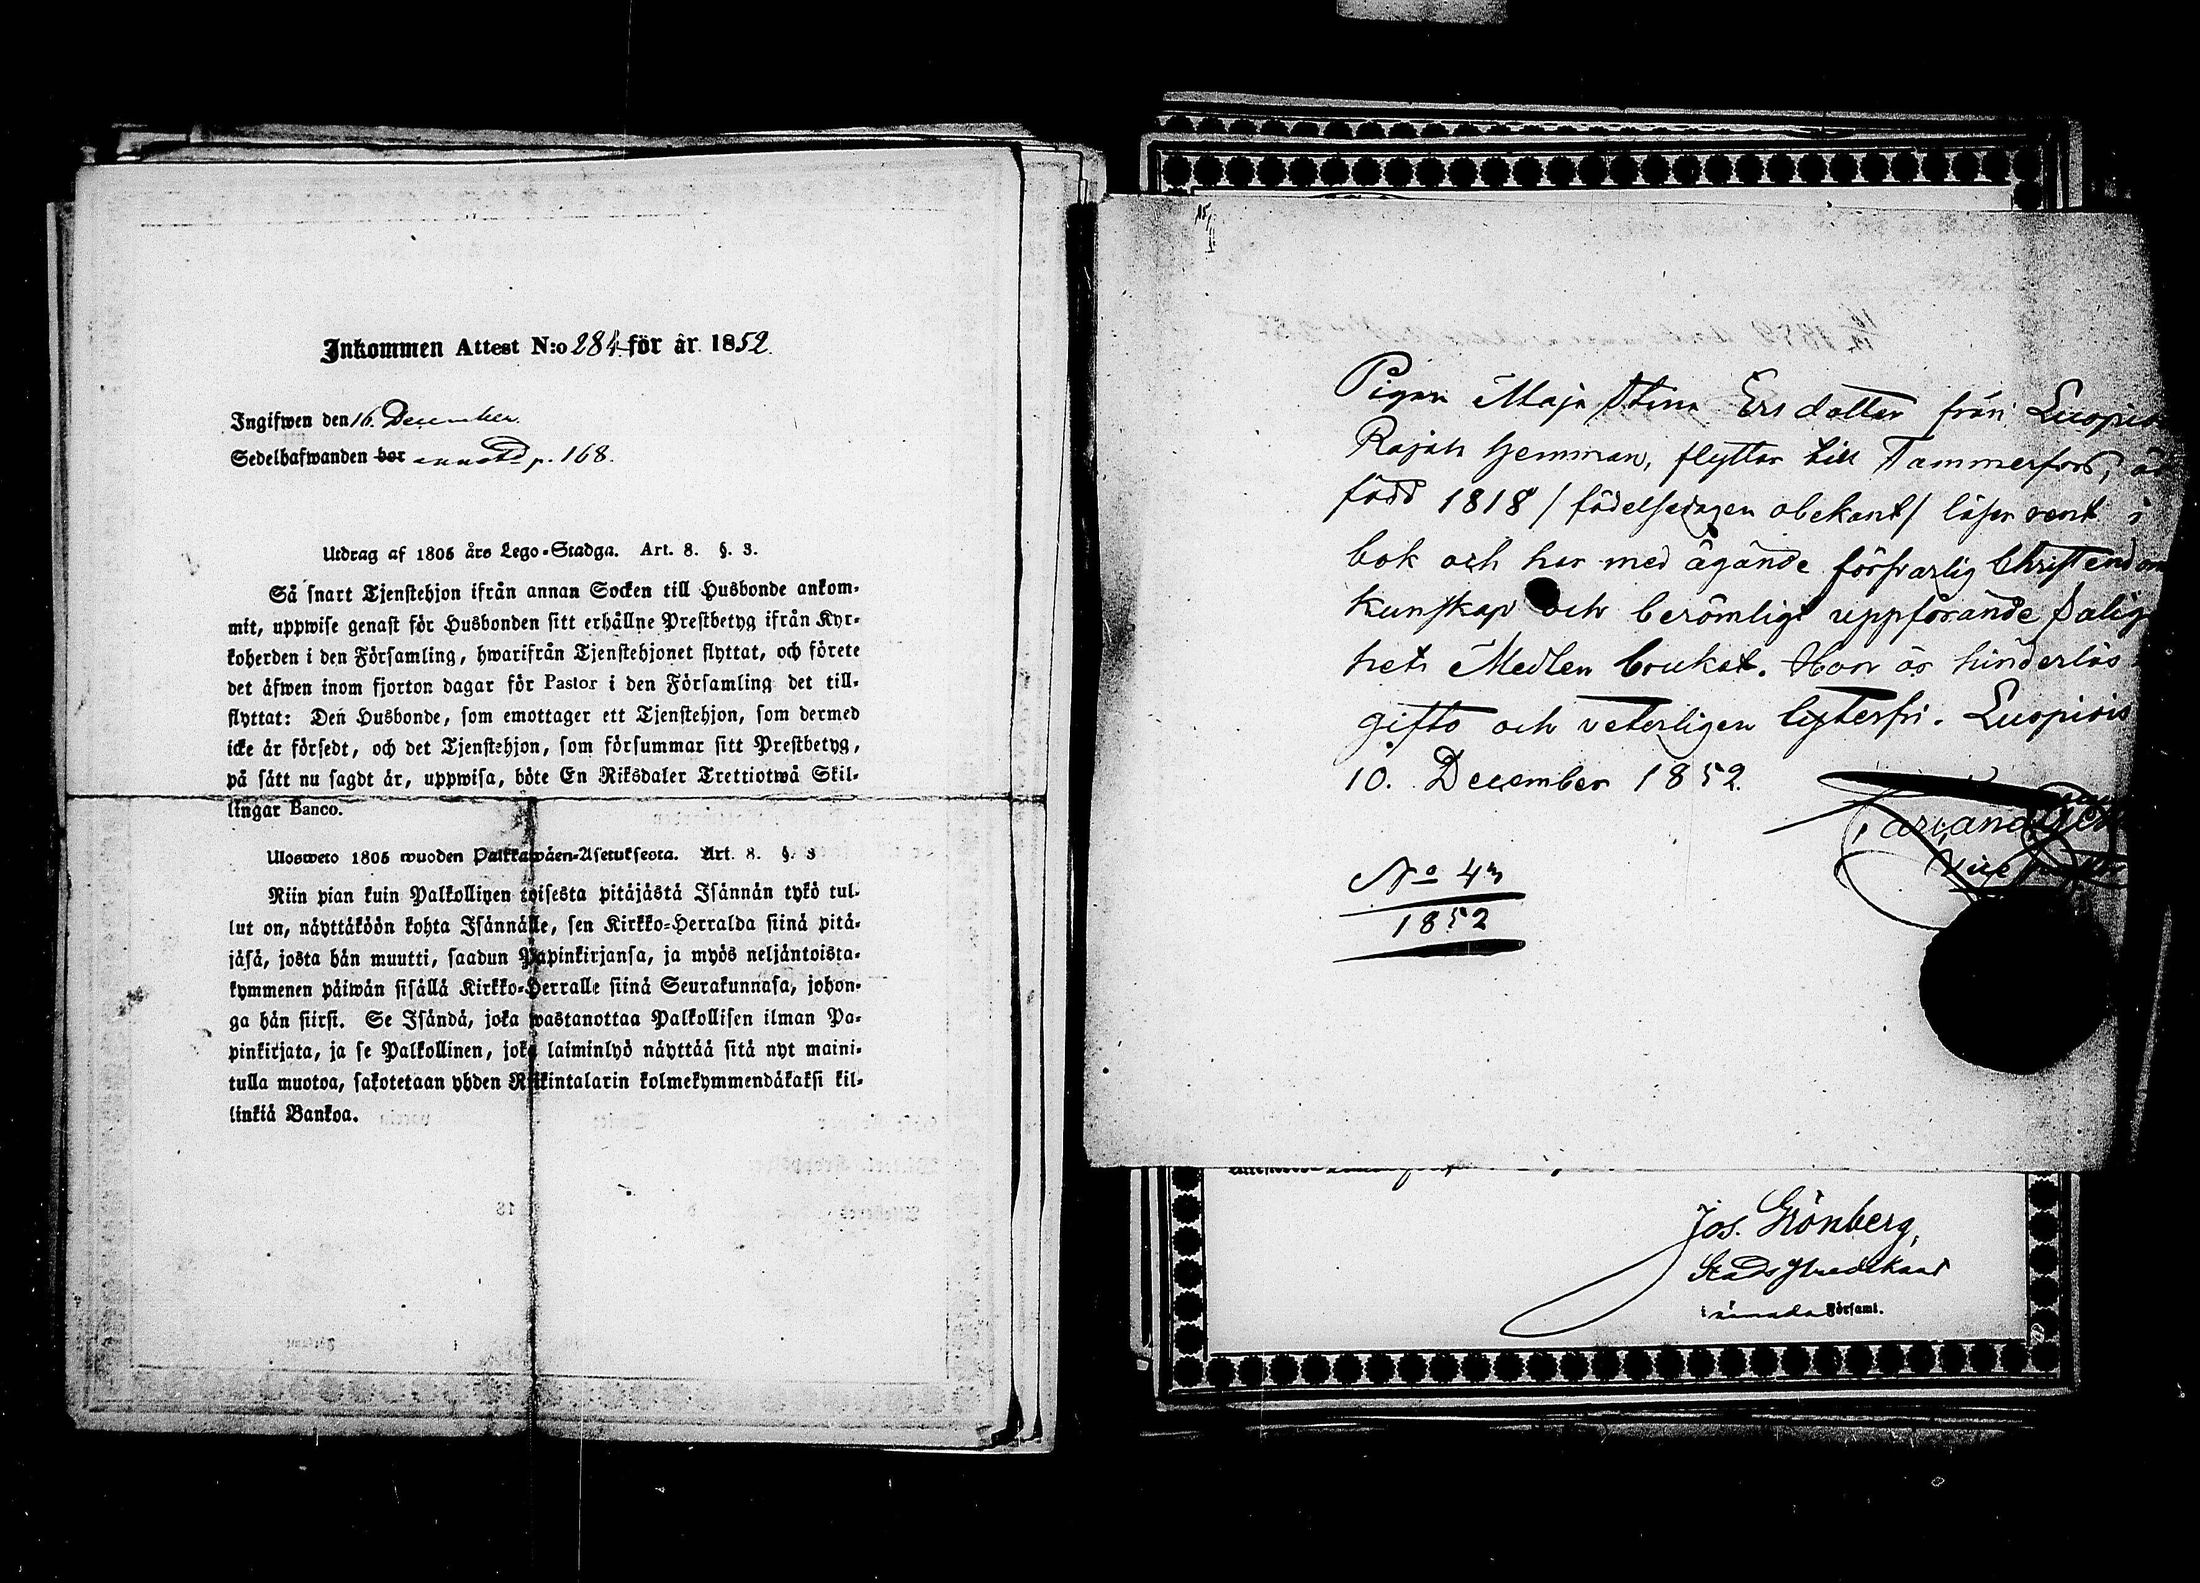 Inkommen Attest N:o 284 för år 1852.
Ingifwen den 16. December.
Sedelhafwanden bor p. 168.
Utdrag af 1805 års Lego-Stadga. Art. 8. §. 3.
Så snart Tjenstehjon ifrån annan Socken till Husbonde ankom-
mit, uppwise genast för Husbonden sitt erhållne Prestbetyg ifrån Kyr-
koherden i den Församling, hwarifrån Tjenstehjonet flyttat, och förete
det äfwen inom fjorton dagar för Pastor i den Församling det till-
flyttat: Den Husbonde, som emottager ett Tjenstehjon, som dermed
icke är försedt, och det Tjenstehjon, som försummar sitt Prestbetyg,
på sätt nu sagdt är, uppwisa, böte En Riksdaler Trettiotwå Skil-
lingar Banco.
Ulosweto 1805 wuoden Palkkawäen-Asetuksesta. Art. 8. §. 3
Niin pian kuin Palkollinen toisesta pitäjästä Isännän tykö tul-
lut on, näyttäköön kohta Isännälle, sen Kirkko-Herralda siinä pitä-
jäsä, josta hän muutti, saadun Papinkirjansa, ja myös neljäntoista-
kymmenen päiwän sisällä Kirkko-Herralle siinä Seurakunnasa, johon-
ga hän siirsi. Se Isändä, joka wastanottaa Palkollisen ilman Pa-
pinkirjata, ja se Palkollinen, joka laiminlyö näyttää sitä nyt maini-
tulla muotoa, sakotetaan yhden Riikintalarin kolmekymmendäkaksi kil-
linkiä Bankoa.
Pigan Maja Stina Ersdotter från Luopiois
Rajala hemman, flyttar till Tammerfors, är
född 1818 / födelsedagen obekant / läser rent i
bok och har med ägande försvarlig Christendom
kunskap och berömligt uppförande Salig
hets Medlen brukat. Hon är hinderlös
gifto och veterligen lyterfri. Luopiois
10. December 1852.
Vice
No 43
1852
Jos. Grönberg,
Stads Predikant
i nämnda Församl.